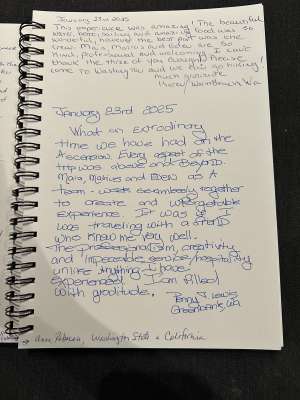 January 23rd 2025
This experience was amazing! The beautiful
water, boat, sailing and amazing food was so
wonderful, however the best part was the
crew. Maia, Marios and Eden are so
kind, professional and welcoming. I can't
thank the three of you enough! Please
come to Washington and we can go hiking!
Much gratitude
January 23rd 2025
What an extrodinary
time we have had on the
Ascension. Every aspect of the
trip was above and Beyond.
Maia, Marios and Eden as A
Team - work seamlessly together
to create and unforgetable
experience. It was if I
was traveling with a friend
who knew me very well.
The professionalism, creativity
and impecable service/hospitality
unlike anything I have
experienced. I am filled
with gratitude.
Lewis
WA
Ann Rebecca, Washington State & California